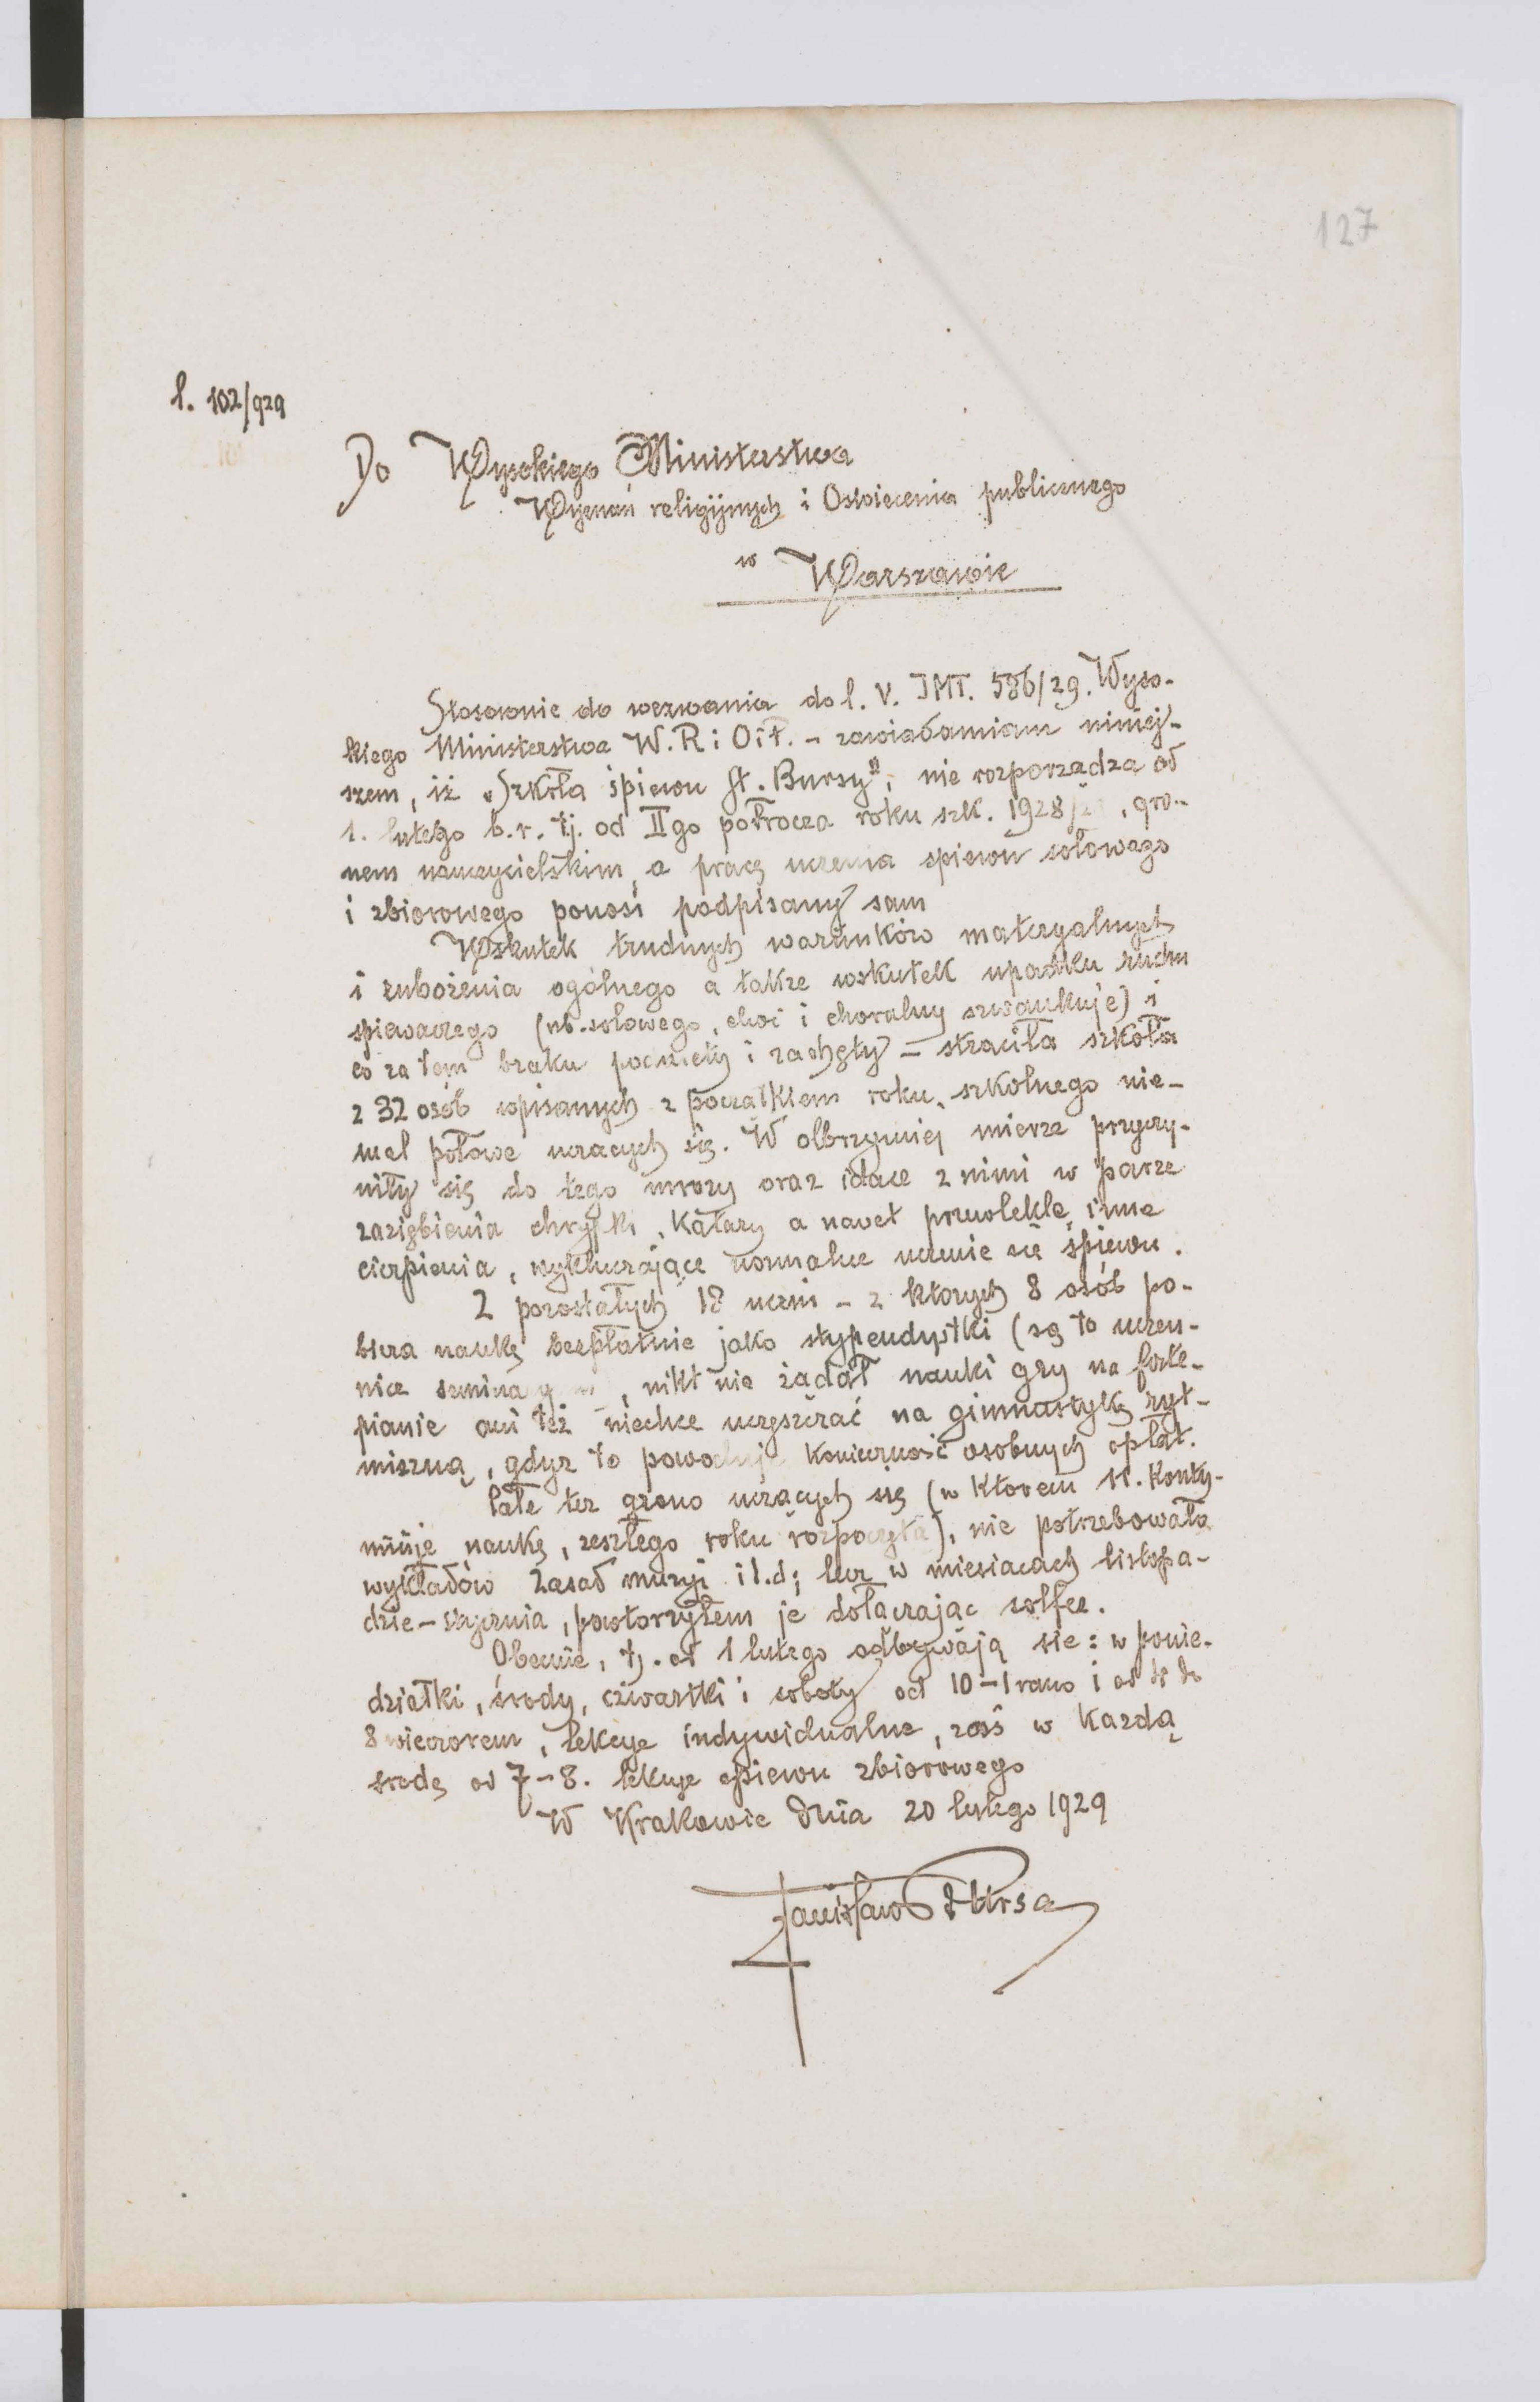 127
l. 102/929
Do Wysokiego Ministerstwa
Wyznań religijnych i Oświecenia publicznego
w Warszawie
Stosownie do wezwania do l. V. JMT. 586/29. Wyso-
kiego Ministerstwa W. R i O i P. - zawiadamiam niniej-
szem, iż „Szkoła śpiewu St. Bursy", nie rozporządza od
1. lutego b.r. tj. od IIgo półrocza roku szk. 1928/29, gro-
nem nauczycielskim, a pracę uczenia śpiewu solowego
i zbiorowego ponosi podpisany sam
Wskutek trudnych warunków materyalnych
i zubożenia ogólnego a także wskutek upadku ruchu
śpiewaczego (nb. solowego, choć i choralny szwankuje) i
co za tem braku podniety i zachęty - straciła szkoła
z 32 osób wpisanych z początkiem roku szkolnego nie-
mal połowę uczących się. W olbrzymiej mierze przyczy-
niły się do tego mrozy oraz idące z nimi w parze
zaziębienia chrypki, katary a nawet przewlekłe inne
cierpienia, wykluczające normalne uczenie się śpiewu.
Z pozostałych 18 uczni - z których 8 osób po-
biera naukę bezpłatnie jako stypendystki (są to uczen-
nice , nikt nie żądał nauki gry na forte-
pianie ani też niechce uczęszczać na gimnastykę ryt-
miczną, gdyż to powoduje konieczność osobnych opłat.
Całe też grono uczących się (w którem 11. konty-
nuuje naukę, zeszłego roku rozpoczętą), nie potrzebowało
wykładów zasad muzyki i t.d; lecz w miesiącach listopa-
dzie - stycznia, powtorzyłem je dołączając solfeż.
Obecnie, tj. od 1 lutego odbywają sie: w ponie-
działki, środy, czwartki i soboty od 10 - 1 rano i od 4 do
8 wieczorem, lekcye indywidualne, zaś w każdą
środę od 7 - 8. lekcye śpiewu zbiorowego
W Krakowie dnia 20 lutego 1929
Stanisław Bursa